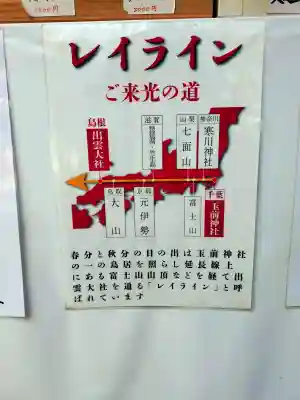 レイライン
ご来光の道
島根
出雲大社
滋賀
山梨
七面山
神奈川
寒川神社
鳥取
大山
京都
元伊勢
富士山
千葉
玉前神社
春分と秋分の日の出は玉前神社
の一の鳥居を照らし延長線上
にある富士山の山頂などを経て出
雲大社を通る「レイライン」と呼
ばれています